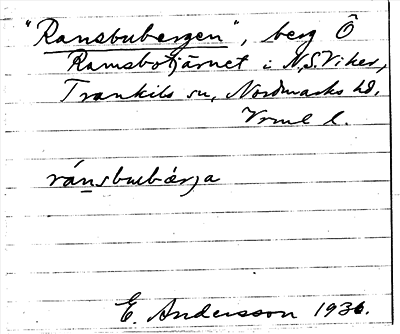 "Ransbubergen", berg Ö
Ramsbotjärnet i N,S.Viker,
Trankils sn, Nordmarks hd,
Vrml l.
ránsbubærja
E. Andersson 1936.